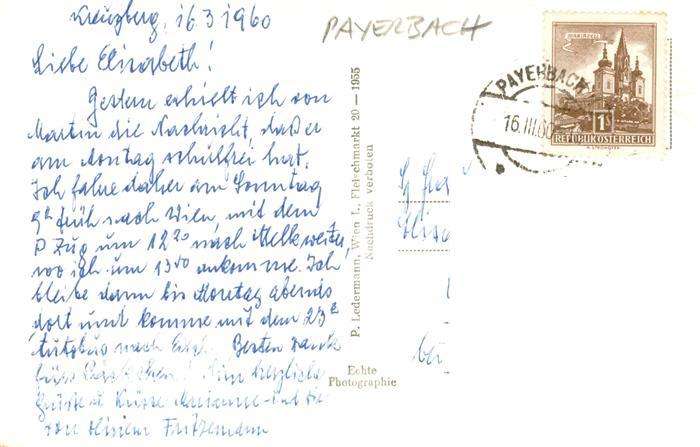 Kreuzberg, 16.3.1960
PAYERBACH
Liebe Elisabeth!
Gestern erhielt ich von
Martin die Nachricht, daß er
am Montag schulfrei hat.
Ich fahre daher am Sonntag
9h früh nach Wien, mit dem
P Zug um 12 20 nach Melk weiter,
wo ich um 13 50 ankomme. Ich
bleibe dann bis Montag abends
dort und komme mit dem 23h
nach Besten Dank
fürs
Grüße u Küsse Marianne
von Fritzemann
P. Ledermann, Wien I., Fleischmarkt 20 — 1955
Nachdruck verboten
Echte
Photographie
PAYERBACH
16.III.60
1S
REPUBLIK ÖSTERREICH